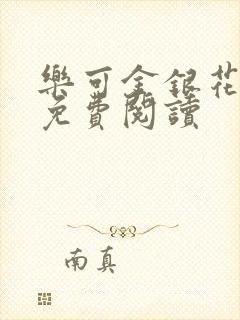 樂可金銀花
免費閱讀
南真